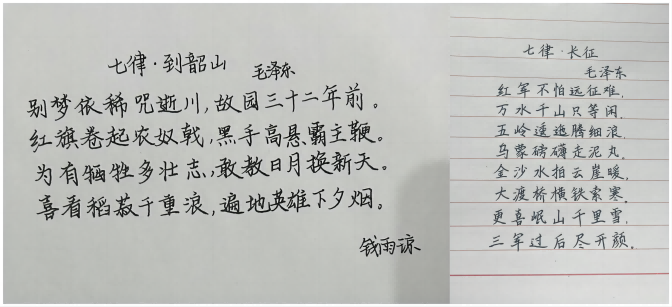 七律·到韶山
毛泽东
别梦依稀咒逝川，故园三十二年前。
红旗卷起农奴戟，黑手高悬霸主鞭。
为有牺牲多壮志，敢教日月换新天。
喜看稻菽千重浪，遍地英雄下夕烟。
钱雨谅
七律·长征
毛泽东
红军不怕远征难，
万水千山只等闲。
五岭逶迤腾细浪，
乌蒙磅礴走泥丸。
金沙水拍云崖暖，
大渡桥横铁索寒。
更喜岷山千里雪，
三军过后尽开颜。